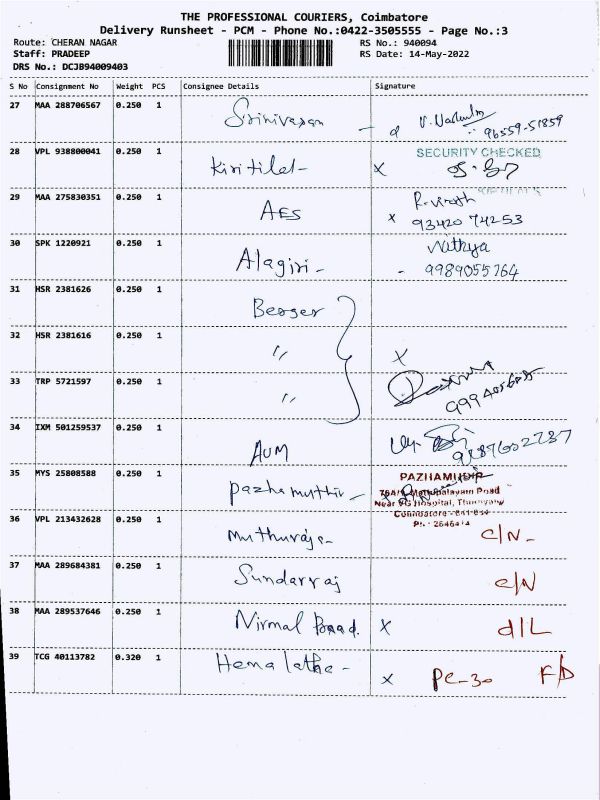 THE PROFESSIONAL COURIERS, Coimbatore
Delivery Runsheet - PCM - Phone No.:0422-3505555 - Page No.:3
Route: CHERAN NAGAR RS No.: 940094
Staff: PRADEEP RS Date: 14-May-2022
DRS No.: DCJB94009403
S No Consignment No Weight PCS Consignee Details Signature
27 MAA 288706567 0.250 1 Srinivasan 96559-51859
28 VPL 938800041 0.250 1 Kiritilal - X SECURITY CHECKED
29 MAA 275830351 0.250 1 AES X 93420 74253
30 SPK 1220921 0.250 1 Alagiri - Nithya - 9989055764
31 HSR 2381626 0.250 1 Berger
32 HSR 2381616 0.250 1 " X
33 TRP 5721597 0.250 1 "
34 IXM 501259537 0.250 1 AUM
35 MYS 25808588 0.250 1 Pazhamuthir -
Coimbatore
36 VPL 213432628 0.250 1 Muthuraja - C/N -
37 MAA 289684381 0.250 1 Sundarraj C/N
38 MAA 289537646 0.250 1 Nirmal X d/L
39 TCG 40113782 0.320 1 Hemalatha - X PC-30 F/D